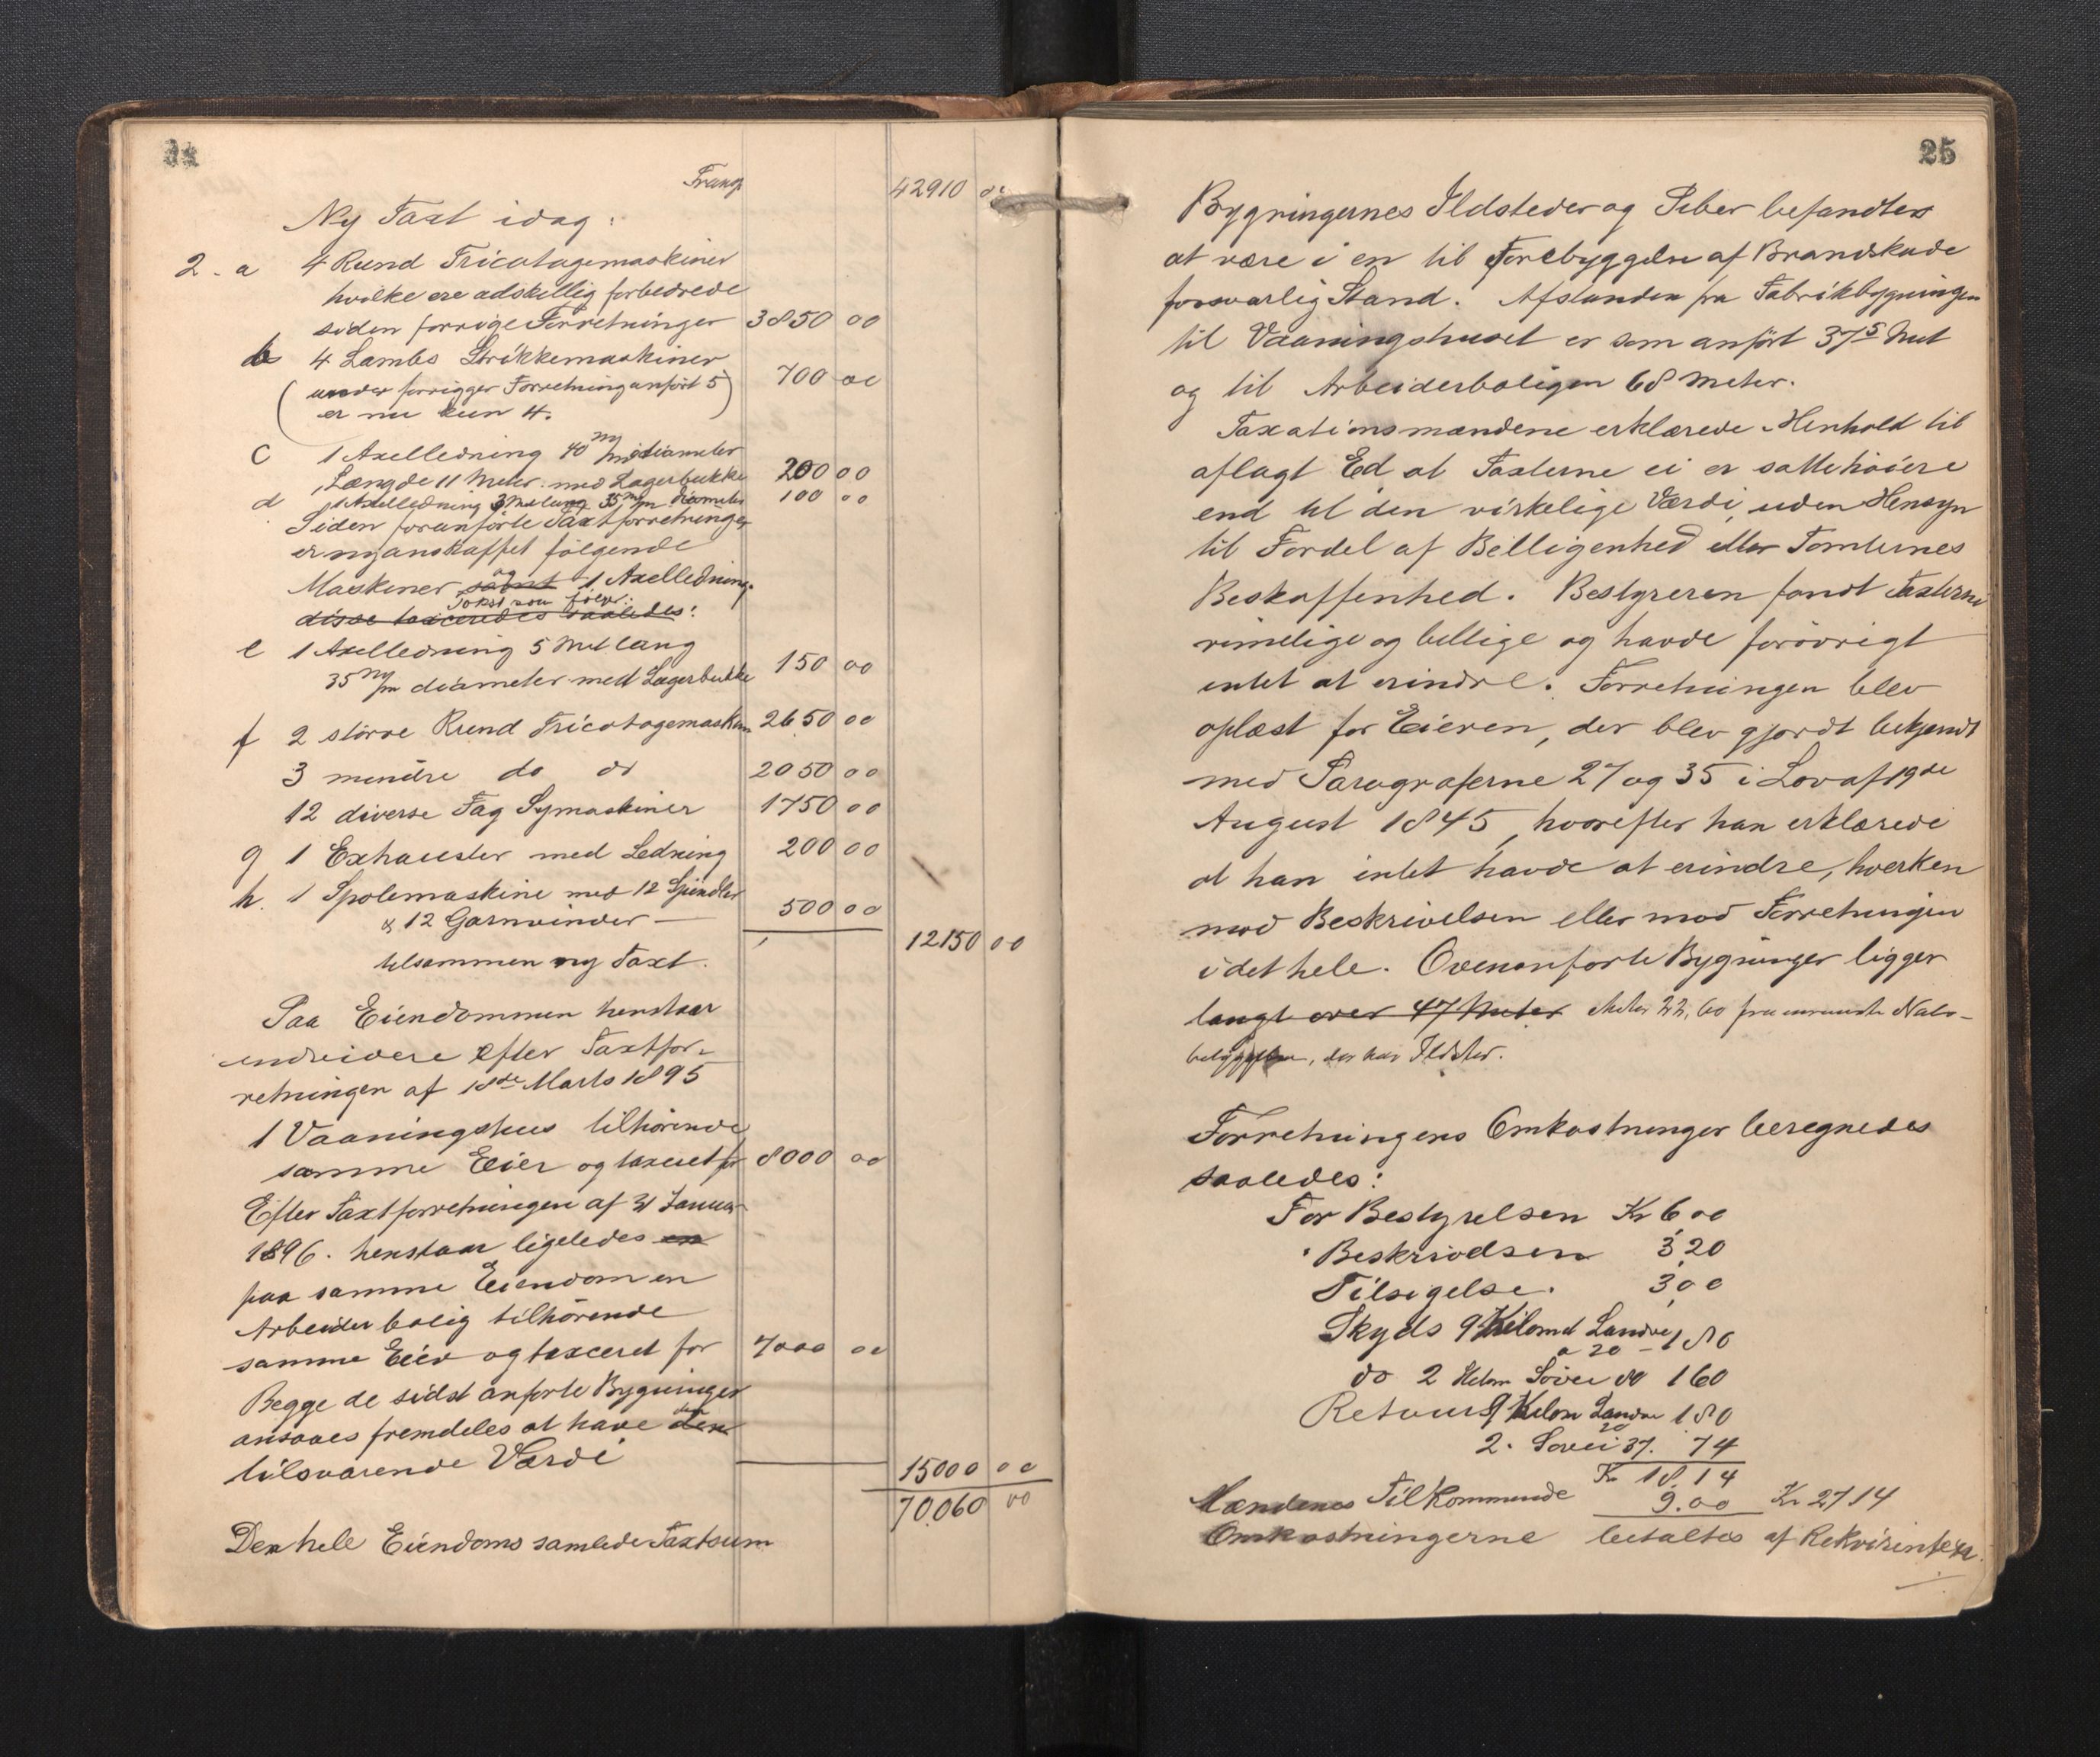 Transp 42910 00
Ny Taxt idag:
2. a 4 Rund Tricotagemaskiner
hvilke ere adskillig forbedrede
siden forrige Forretninger 3850 00
b 4 Lambs Strikkemaskiner
(under forrige Forretning anført 5) 700 00
er nu kun 4.
c 1 Axelledning 40 m/m diameter
Længde 11 Meter med Lagerbukke 200 00
d 1 Axelledning 3 Met lang 35 m/m diameter 100 00
Siden foranførte Taxtforretninger
er nyanskaffet følgende
Maskiner samt og 1 Axelledning.
Takst som følger:
disse taxceredes saaledes:
e 1 Axelledning 5 Met lang
35 m/m diameter med Lagerbukke 150 00
f 2 større Rund Tricotagemaskin 2650 00
3 mindre do do 2050 00
12 diverse Fag Symaskiner 1750 00
g 1 Exhauster med Ledning 200 00
h. 1 Spolemaskine med 12 Spindler
& 12 Garnvinder — 500 00
tilsammen ny Taxt. 12150 00
Paa Eiendommen henstaar
endvidere efter Taxtfor-
retningen af 18de Marts 1895
1 Vaaningshus tilhørende
samme Eier og taxeret for 8000 00
Efter Taxtforretningen af 31 Januar
1896. henstaar ligeledes en
paa samme Eiendom en
Arbeiderbolig tilhørende
samme Eier og taxceret for 7000 00
Begge de sidst anførte Bygninger
ansaaes fremdeles at have den
tilsvarende Værdi 15000 00
70.060 00
Den hele Eiendoms samlede Taxtsum
25
Bygningernes Ildsteder og Piber befandtes
at være i en til Forebyggelse af Brandskade
forsvarlig Stand. Afstanden fra Fabrikbygningen
til Vaaningshuset er som anført 375 Met
og til Arbeiderboligen 68 Meter.
Taxationsmændene erklærede i Henhold til
aflagt Ed at Taxterne ei er satte høiere
end til den virkelige Værdi, uden Hensyn
til Fordel af Beliggenhed eller Tomternes
Beskaffenhed. Bestyreren fandt Taxterne
rimelige og billige og havde forøvrigt
intet at erindre. Forretningen blev
oplæst for Eieren, der blev gjordt bekjendt
med Paragraferne 27 og 35 i Lov af 19de
August 1845, hvorefter han erklærede
at han intet havde at erindre, hverken
mod Beskrivelsen eller mod Forretningen
i det hele. Ovenanførte Bygninger ligger
langt over 47 Meter Meter 22,60 fra nærmeste Nabo-
bebyggelse, der har Ildsted.
Forretningens Omkostninger beregnedes
saaledes:
For Bestyrelsen Kr 6,00
" Beskrivelsen 3,20
Tilsigelse. 3,00
Skyds 9 Kilomet Landvei
a 20 - 1 80
do 2 Kilom Søvei do 1 60
Retour 9 Kilom Landvei 20 1 80
2. Søvei 37. 74
Kr 18,14
Mændenes Tilkommende 9.00 Kr 27 14
Omkostningerne betaltes af Rekvirenten.